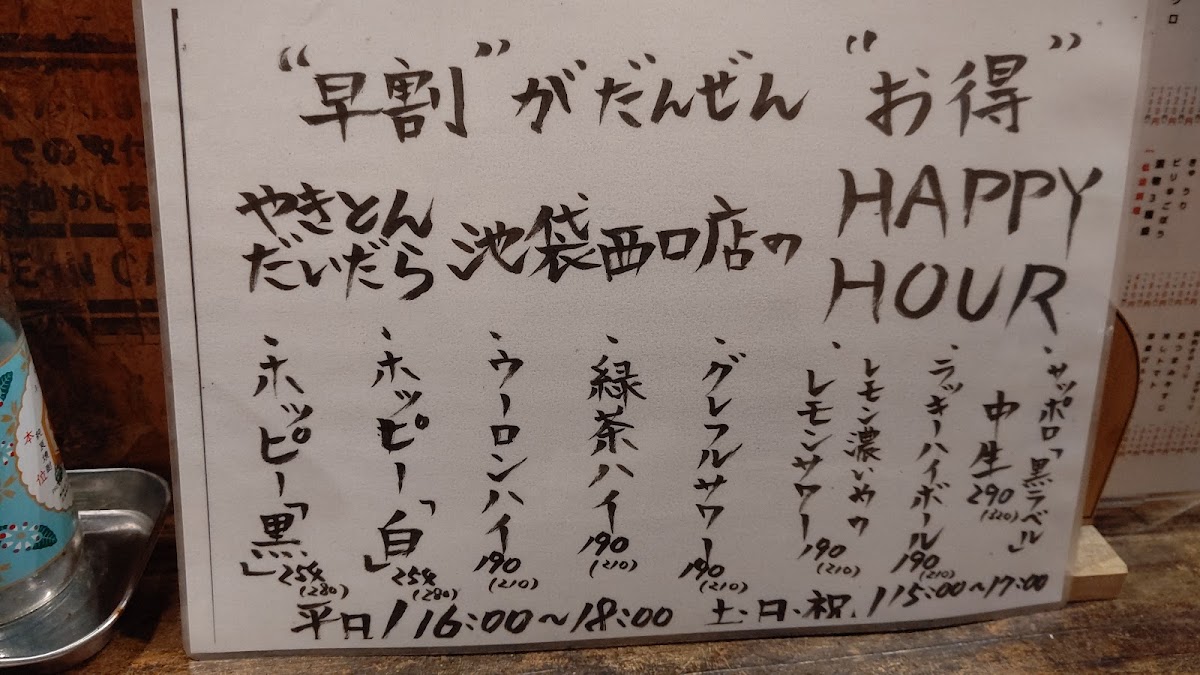 “早割”がだんぜん“お得”
やきとん
だいだら
池袋西口店の
HAPPY
HOUR
・サッポロ「黒ラベル」
中生 290
(320)
・ラッキーハイボール 190
(210)
レモン濃いめの
・レモンサワー 190
(210)
・グレフルサワー 190
(210)
・緑茶ハイ 190
(210)
・ウーロンハイ 190
(210)
・ホッピー「白」 254
(280)
・ホッピー「黒」 254
(280)
平日/16:00~18:00 土・日・祝/15:00~17:00